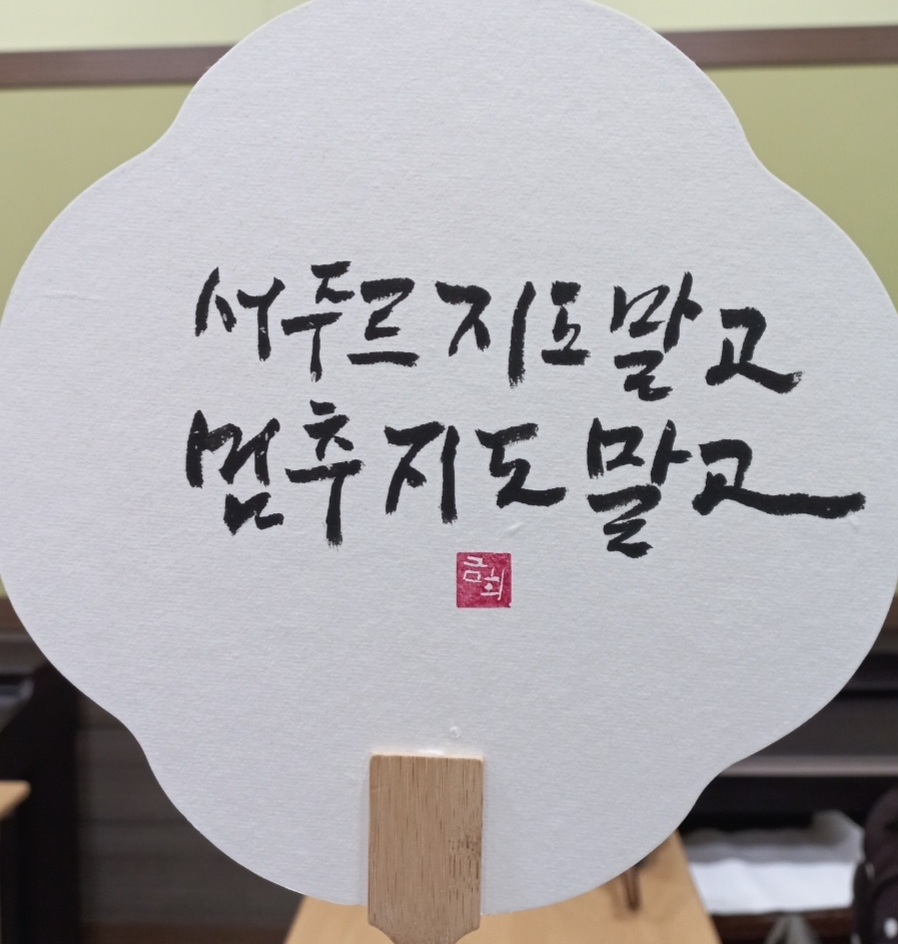 서두르지도말고
멈추지도말고
금희